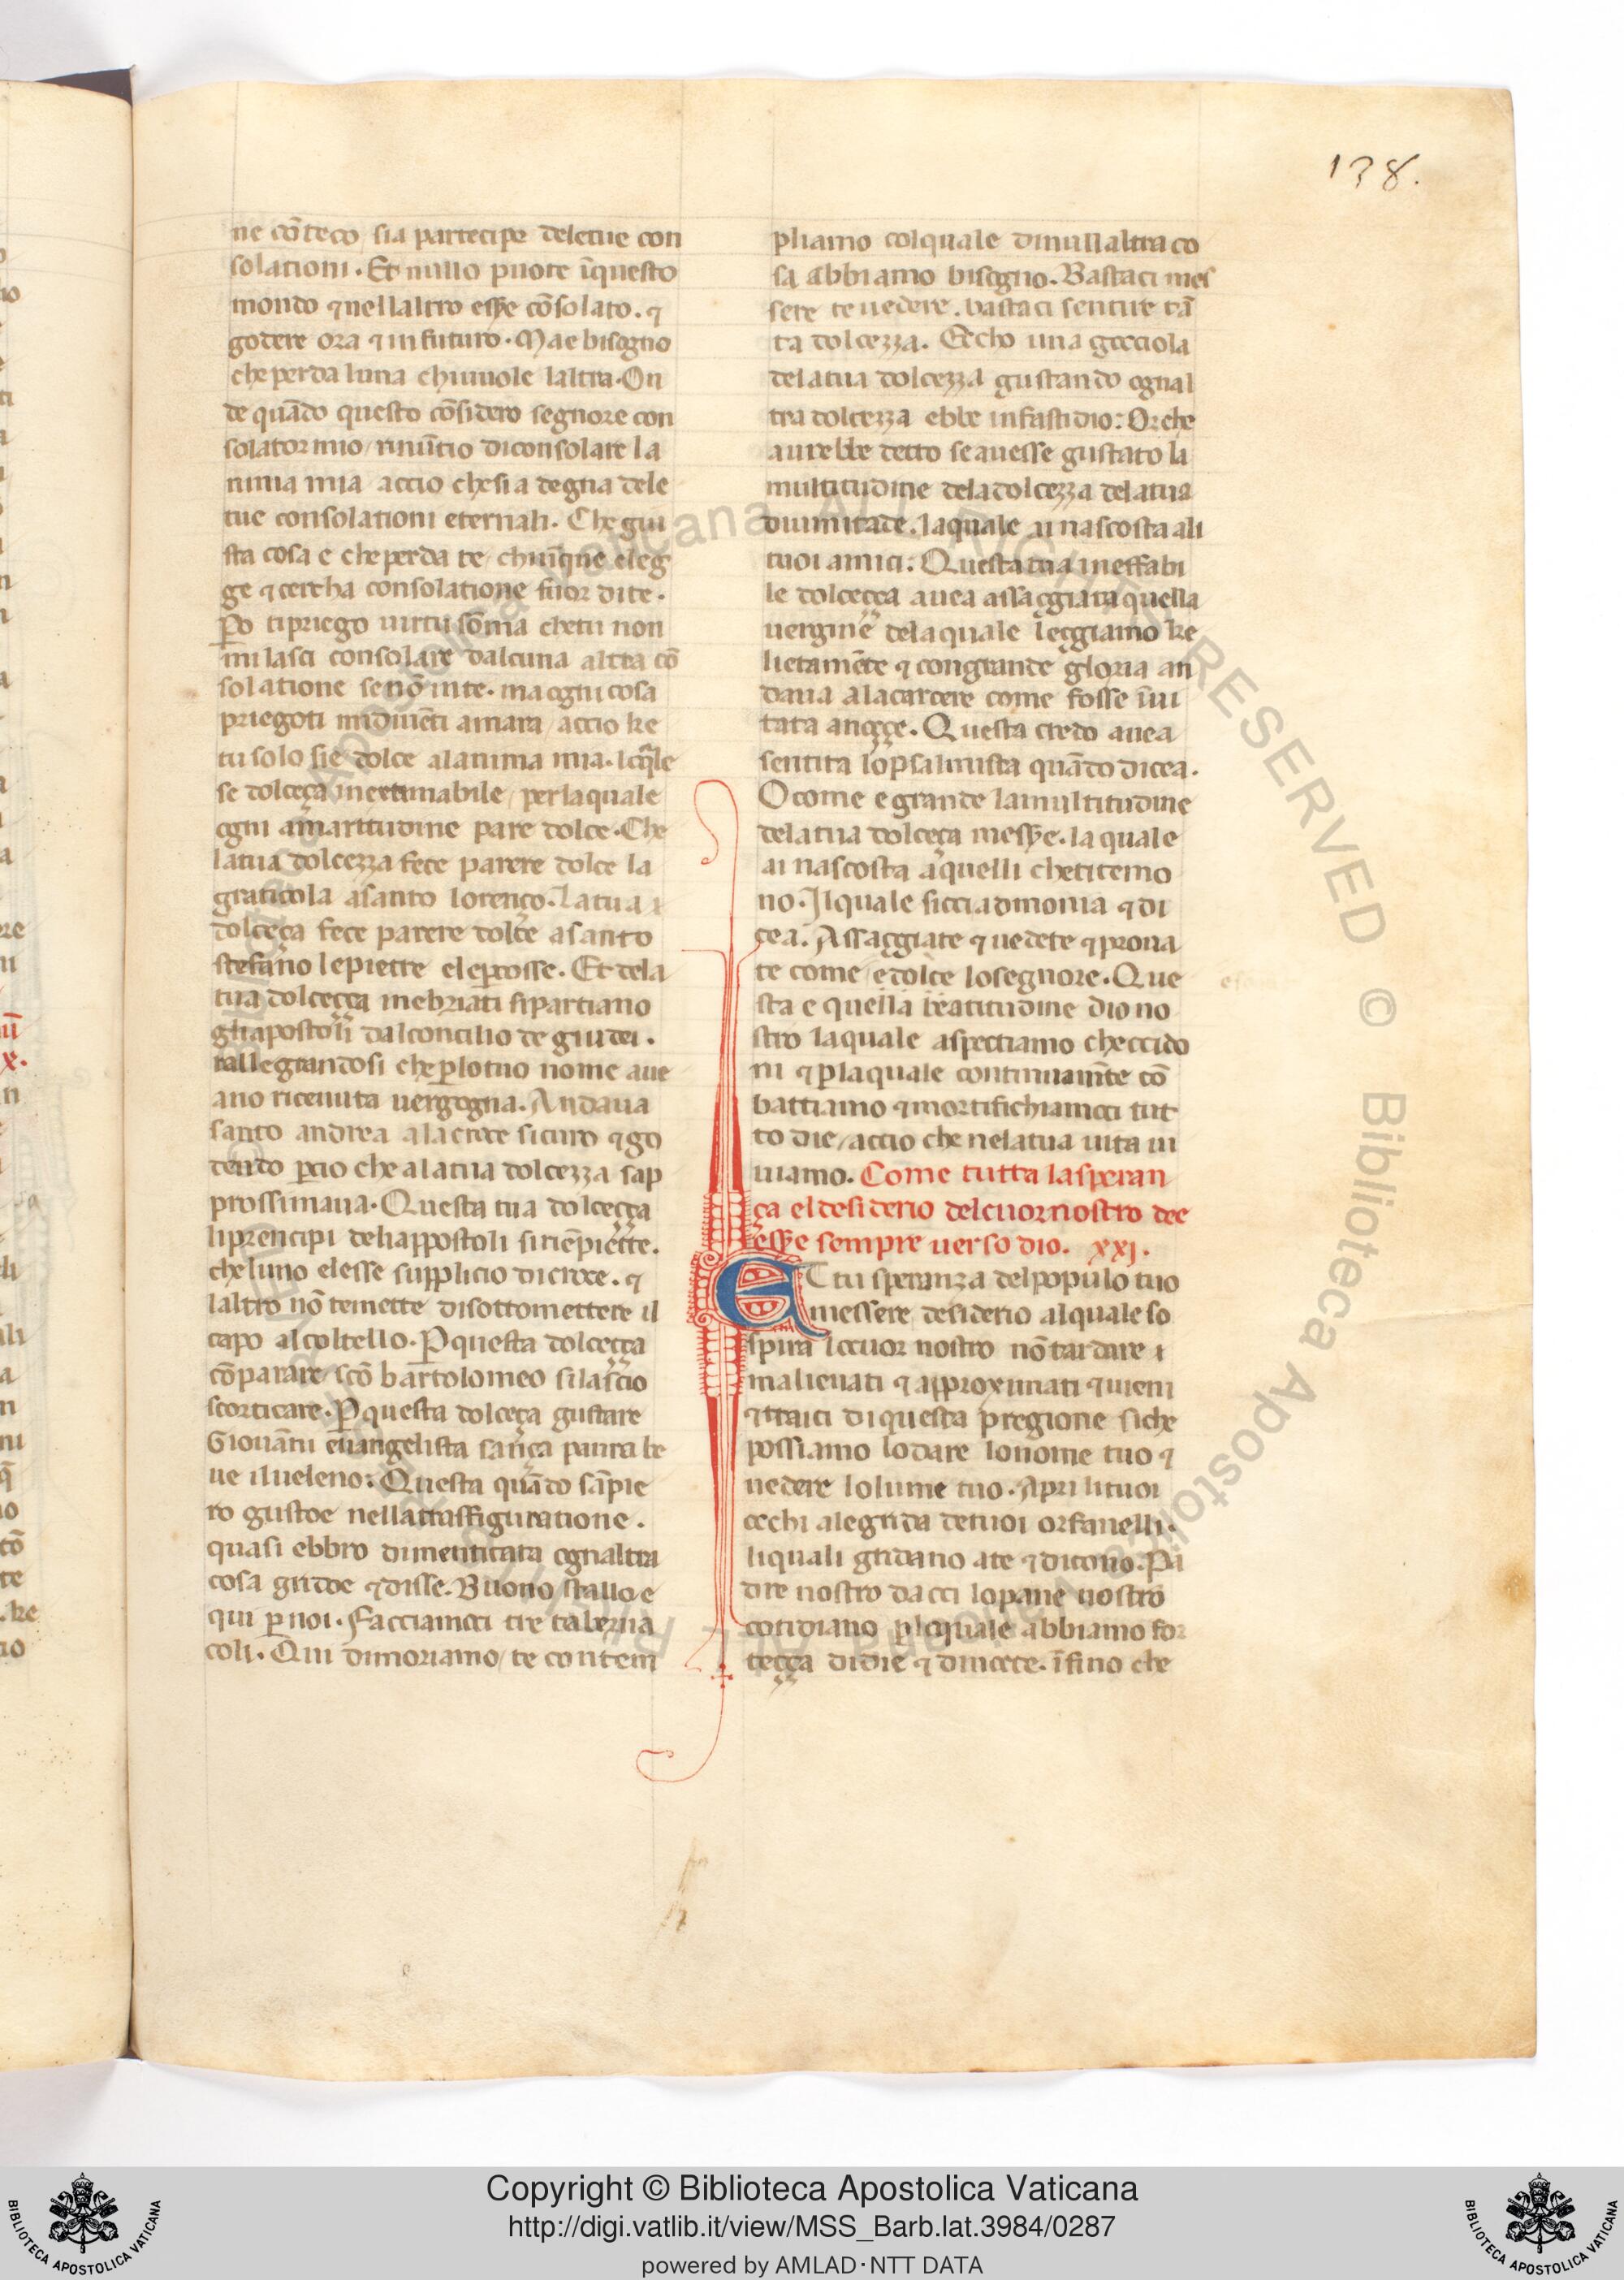 138.
ne cōteco sia partecipe deletue con
solationi. Et nullo puote īquesto
mondo ⁊ nellaltro eẜẜe cōsolato. ⁊
godere ora ⁊ in futuro. Ma e bisogno
che perda luna chi uuole laltra. On
de quādo questo cōsidero segnore con
solator mio / rinūtio diconsolare la
nima mia accio chesia degna dele
tue consolationi eternali. Che giu
sta cosa e che perda te / chiūque eleg
ge ⁊ cercha consolatione fuor dite.
ꝑo tipriego uirtu sōma chetu non
mi lasci consolare dalcuna altra cō
solatione se nō inte. ma ogni cosa
priegoti midiuēti amara / accio ke
tu solo sie dolce alanima mia. lo q̄le
se dolceça inextimabile / per laquale
ogni amaritudine pare dolce. Che
latua dolcezza fece parere dolce la
graticola asanto lorenço. La tua
dolceça fece parere dolce asanto
stefano lepietre elepercosse. Et dela
tua dolceçça inebriati sipartiano
gliapostoli dal concilio de giudei.
rallegrandosi che ꝑ lotuo nome aue
ano riceuuta uergogna. Andaua
santo andrea ala croce sicuro ⁊ go
dendo ꝑcio che ala tua dolcezza sap
prossimaua. Questa tua dolceçça
liprencipi deliappostoli si riēpiette.
che luno elesse supplicio di croce. ⁊
laltro nō temette disottomettere il
capo al coltello. ꝑ questa dolceçça
cōparare / scō bartolomeo si lascio
scorticare. ꝑ questa dolceça gustare
Giouāni euangelista sança paura be
ue il ueleno: Questa quādo sāpie
ro gustoe nellatrasfiguratione.
quasi ebbro dimenticata ognaltra
cosa gridoe ⁊ disse. Buono stallo e
qui ꝑ noi. Facciamoci tre taberna
coli. Qui dimoriamo / te contem
pliamo colquale dinullaltra co
sa abbiamo bisogno. Bastaci mes
sere te uedere. bastaci sentire tā
ta dolcezza. Eccho una gocciola
delatua dolcezza gustando ognal
tra dolcezza ebbe infastidio: Or che
aurebbe detto se auesse gustato la
multitudine dela dolcezza delatua
diuinitade. laquale ai nascosta ali
tuoi amici: Questa tua ineffabi
le dolceçça auea assaggiata quella
uergine dela quale leggiamo ke
lietamēte ⁊ congrande gloria an
daua ala carcere come fosse īui
tata anoççe. Questa credo auea
sentita lo psalmista quādo dicea.
O come e grande la multitudine
delatua dolceça meẜẜe. la quale
ai nascosta aquelli chetitemo
no. Il quale si cci admonia ⁊ di
cea. Assaggiate ⁊ uedete ⁊ proua
te come e dolce losegnore. Que
sta e quella beatitudine dio no
stro laquale aspectiamo checcido
ni ⁊ ꝑ laquale continuamēte cō
battiamo ⁊ mortifichiamoci tut
to die / accio che nelatua uita ui
uiamo. Come tutta lasperan
ça el desiderio delcuor nostro dee
eẜẜe sempre uerso dio. xxj.
Et tu speranza delpopulo tuo
messere desiderio alquale so
spira locuor nostro nō tardare i
malieuati ⁊ approximati ⁊ uieni
⁊ traici di questa pregione siche
possiamo lodare lonome tuo ⁊
uedere lolume tuo. Apri li tuoi
occhi alegrida detuoi orfanelli.
liquali gridano ate ⁊ dicono. Pa
dre nostro dacci lopane nostro
cotidiano ꝑ loquale abbiamo for
teçça didie ⁊ dinocte. īfino che
Copyright © Biblioteca Apostolica Vaticana
http://digi.vatlib.it/view/MSS_Barb.lat.3984/0287
powered by AMLAD·NTT DATA